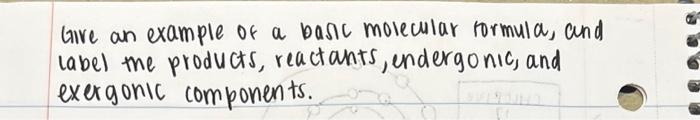 Give an example of a basic molecular formula, and
label the products, reactants, endergonic, and
exergonic components.